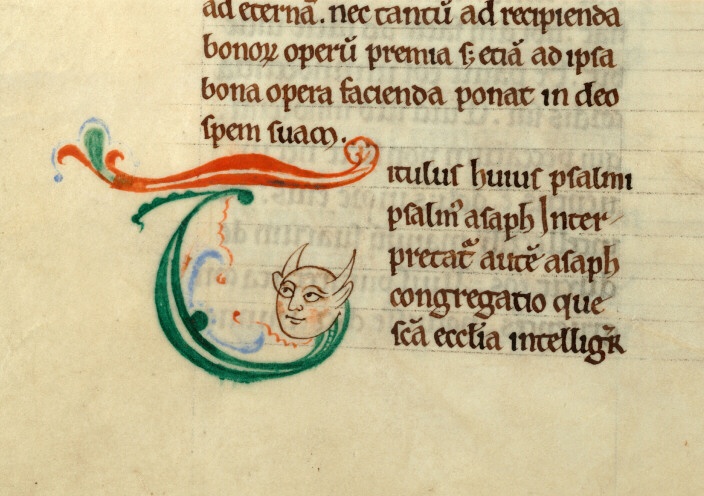 ad eternā. nec tantū ad recipienda
bonoꝝ operū premia s; etiā ad ipsa
bona opera facienda ponat in deo
spem suam.
Titulus huius psalmi
psalm᾽ asaph Inter-
pretat᾽ autē asaph
congregatio que
scā eccl̄ia intelligr̄